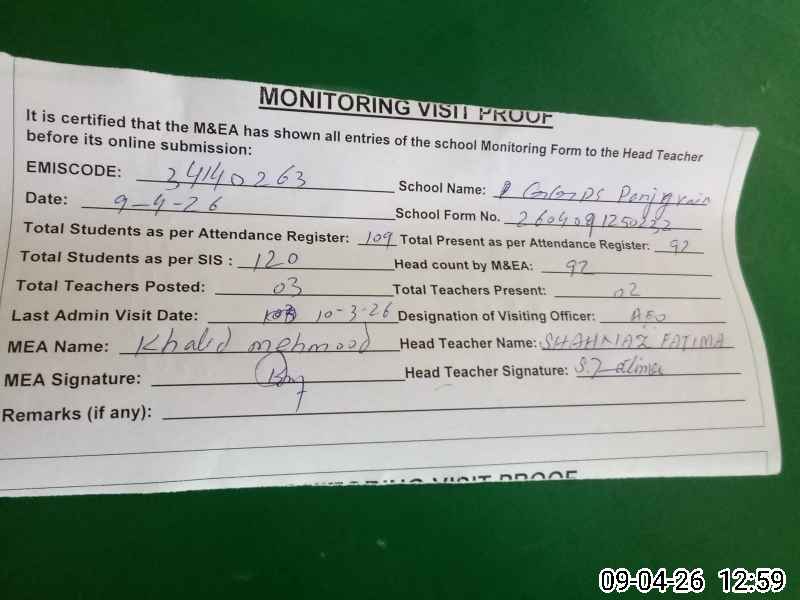 MONITORING VISIT PROOF
It is certified that the M&EA has shown all entries of the school Monitoring Form to the Head Teacher
before its online submission:
EMISCODE: 34140263 School Name:
Date: 9-4-26 School Form No. 2604091250232
Total Students as per Attendance Register: 109 Total Present as per Attendance Register: 92
Total Students as per SIS : 120 Head count by M&EA: 92
Total Teachers Posted: 03 Total Teachers Present: 02
Last Admin Visit Date: 10-3-26 Designation of Visiting Officer: AEO
MEA Name: Khalid mehmood Head Teacher Name: SHAHNAZ FATIMA
MEA Signature: Head Teacher Signature: S. Fatima
Remarks (if any):
MONITORING VISIT PROOF
09-04-26 12:59